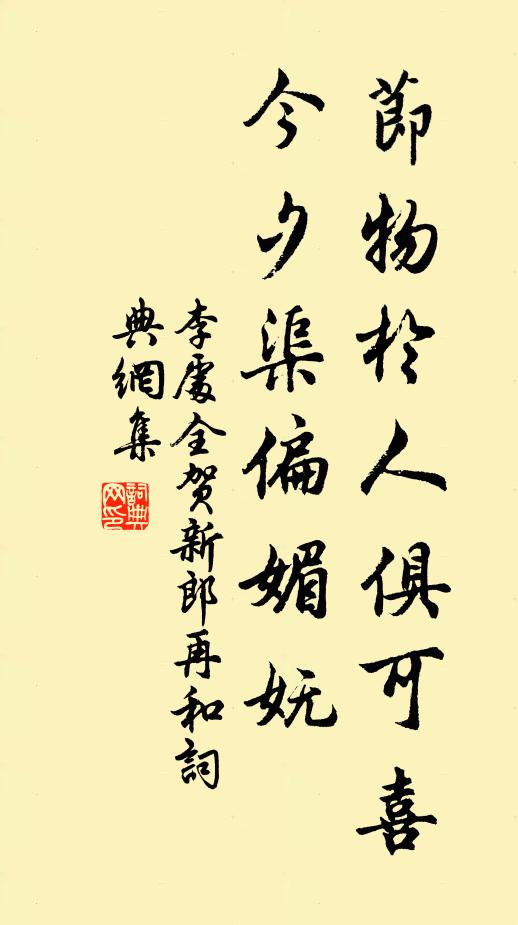 節物於人俱可喜
今夕渠偏媚妩
李處全賀新郎再和詞
典網集
詞典
网印